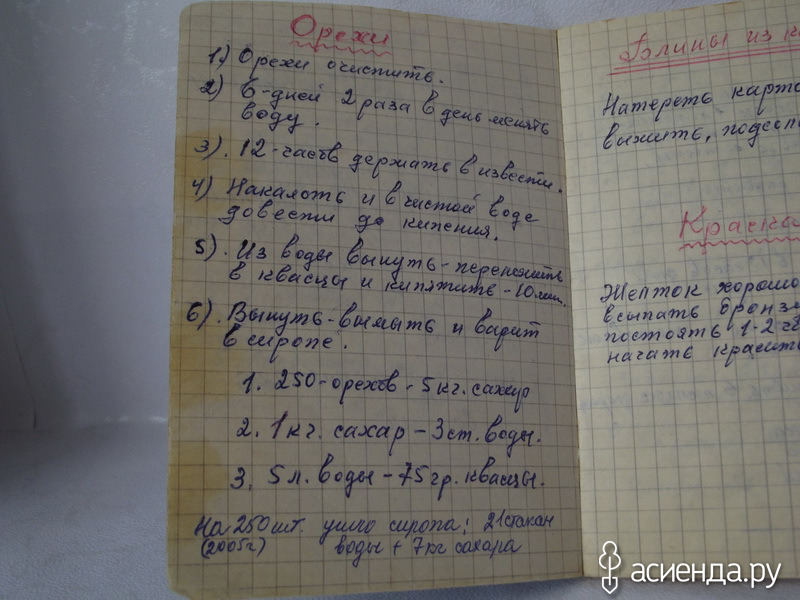 Орехи
1.) Орехи очистить.
2) 6-дней 2 раза в день менять
воду.
3). 12-часов держать в извести.
4) Наколоть и в чистой воде
довести до кипения.
5). Из воды вынуть - переложить
в квасцы и кипятить - 10 мин.
6). Вынуть - вымыть и варить
в сиропе.
1. 250 - орехов - 5 кг. сахур
2. 1 кг. сахар - 3 ст. воды.
3. 5 л. воды - 75 гр. квасцы.
На 250 шт. ушло сиропа: 21 стакан
(2005г) воды + 7 кг сахара
Блины из к
Натереть карто
выжить, подсол
Краски
Желток хорошо
всыпать бронзо
постоять 1-2 ч
начать красить
асиенда.ру